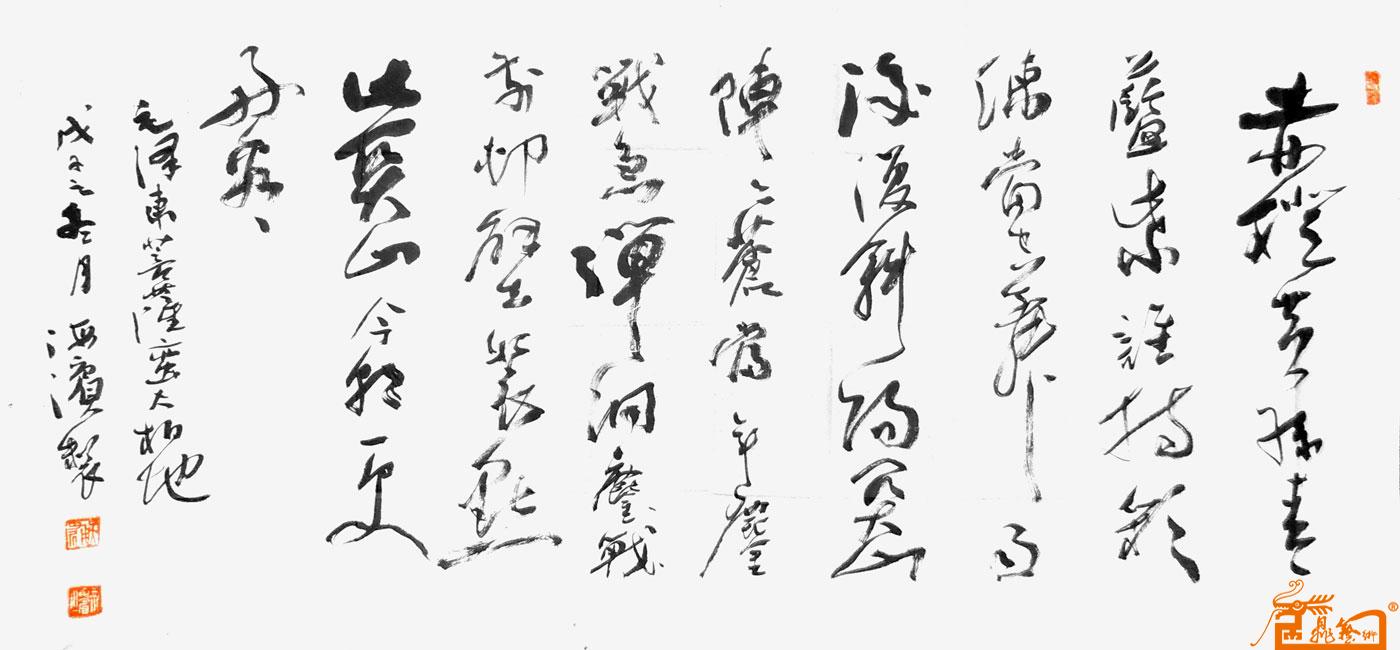 赤橙黃綠青
藍紫誰持彩
練當空舞雨
後復斜陽關山
陣〻蒼當年鏖
戰急彈洞鏖戰
前村壁裝點
此關山今朝更
好看
毛澤東菩薩蠻大柏地
戊子之冬月海濱製